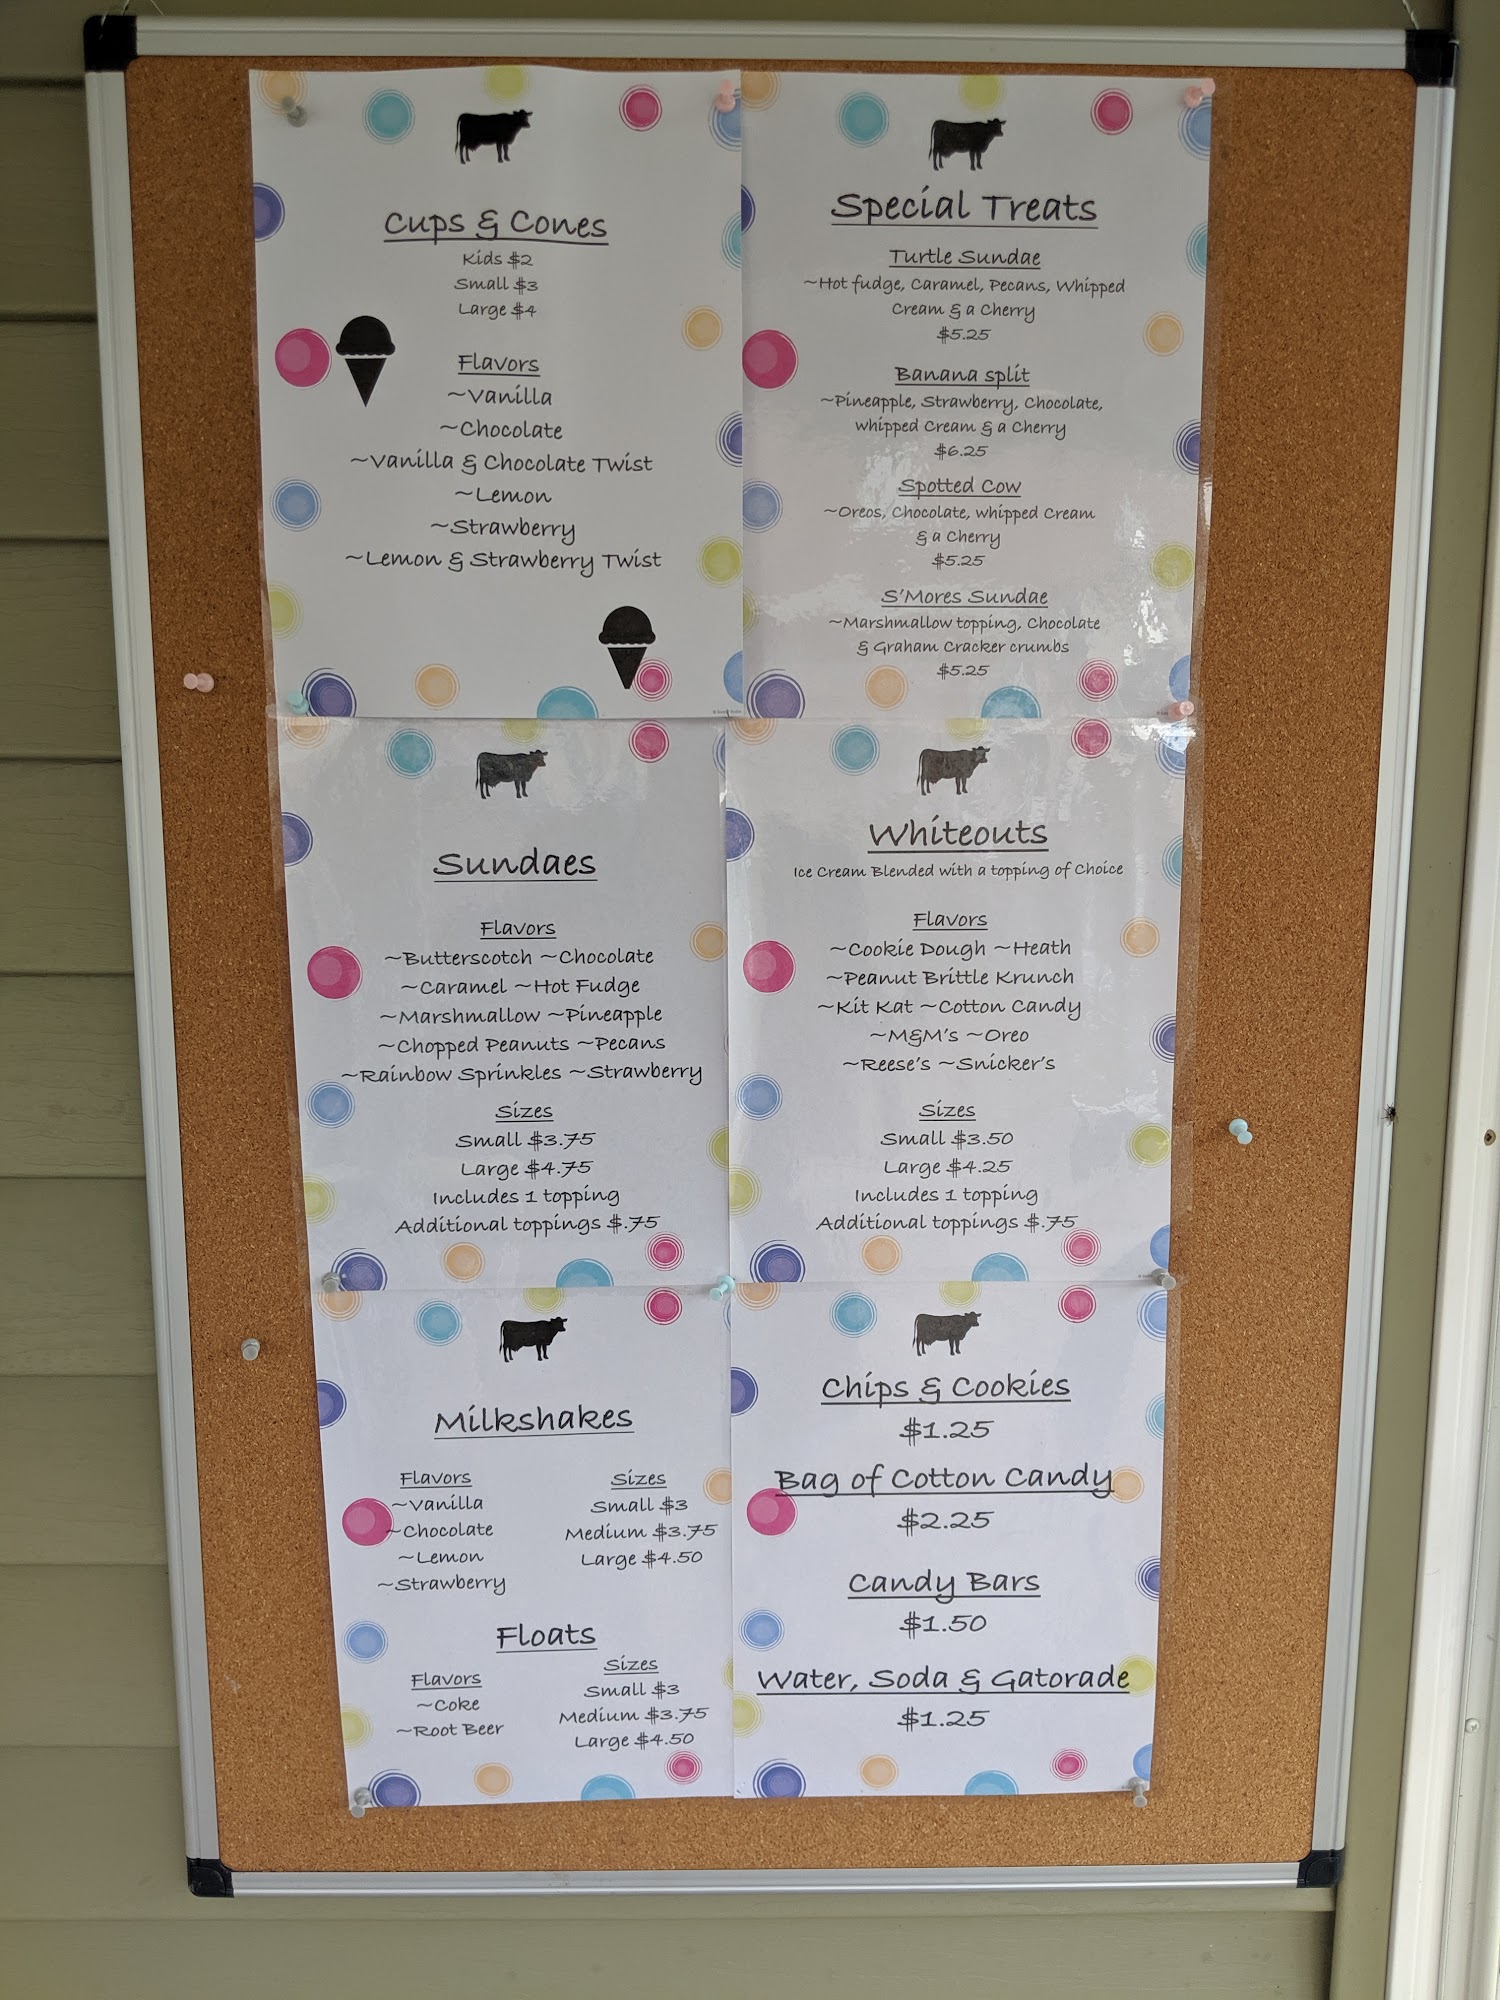 Cups & Cones
Kids $2
Small $3
Large $4
Flavors
~Vanilla
~Chocolate
~Vanilla & Chocolate Twist
~Lemon
~Strawberry
~Lemon & Strawberry Twist
Special Treats
Turtle Sundae
~Hot fudge, Caramel, Pecans, Whipped
Cream & a Cherry
$5.25
Banana split
~Pineapple, Strawberry, Chocolate,
whipped Cream & a Cherry
$6.25
Spotted Cow
~Oreos, Chocolate, whipped Cream
& a Cherry
$5.25
S'Mores Sundae
~Marshmallow topping, Chocolate
& Graham Cracker crumbs
$5.25
Sundaes
Flavors
~Butterscotch ~Chocolate
~Caramel ~Hot Fudge
~Marshmallow ~Pineapple
~Chopped Peanuts ~Pecans
~Rainbow Sprinkles ~Strawberry
Sizes
Small $3.75
Large $4.75
Includes 1 topping
Additional toppings $.75
Whiteouts
Ice Cream Blended with a topping of Choice
Flavors
~Cookie Dough ~Heath
~Peanut Brittle Krunch
~Kit Kat ~Cotton Candy
~M&M's ~Oreo
~Reese's ~Snicker's
Sizes
Small $3.50
Large $4.25
Includes 1 topping
Additional toppings $.75
Milkshakes
Flavors
~Vanilla
~Chocolate
~Lemon
~Strawberry
Sizes
Small $3
Medium $3.75
Large $4.50
Floats
Flavors
~Coke
~Root Beer
Sizes
Small $3
Medium $3.75
Large $4.50
Chips & Cookies
$1.25
Bag of Cotton Candy
$2.25
Candy Bars
$1.50
Water, Soda & Gatorade
$1.25